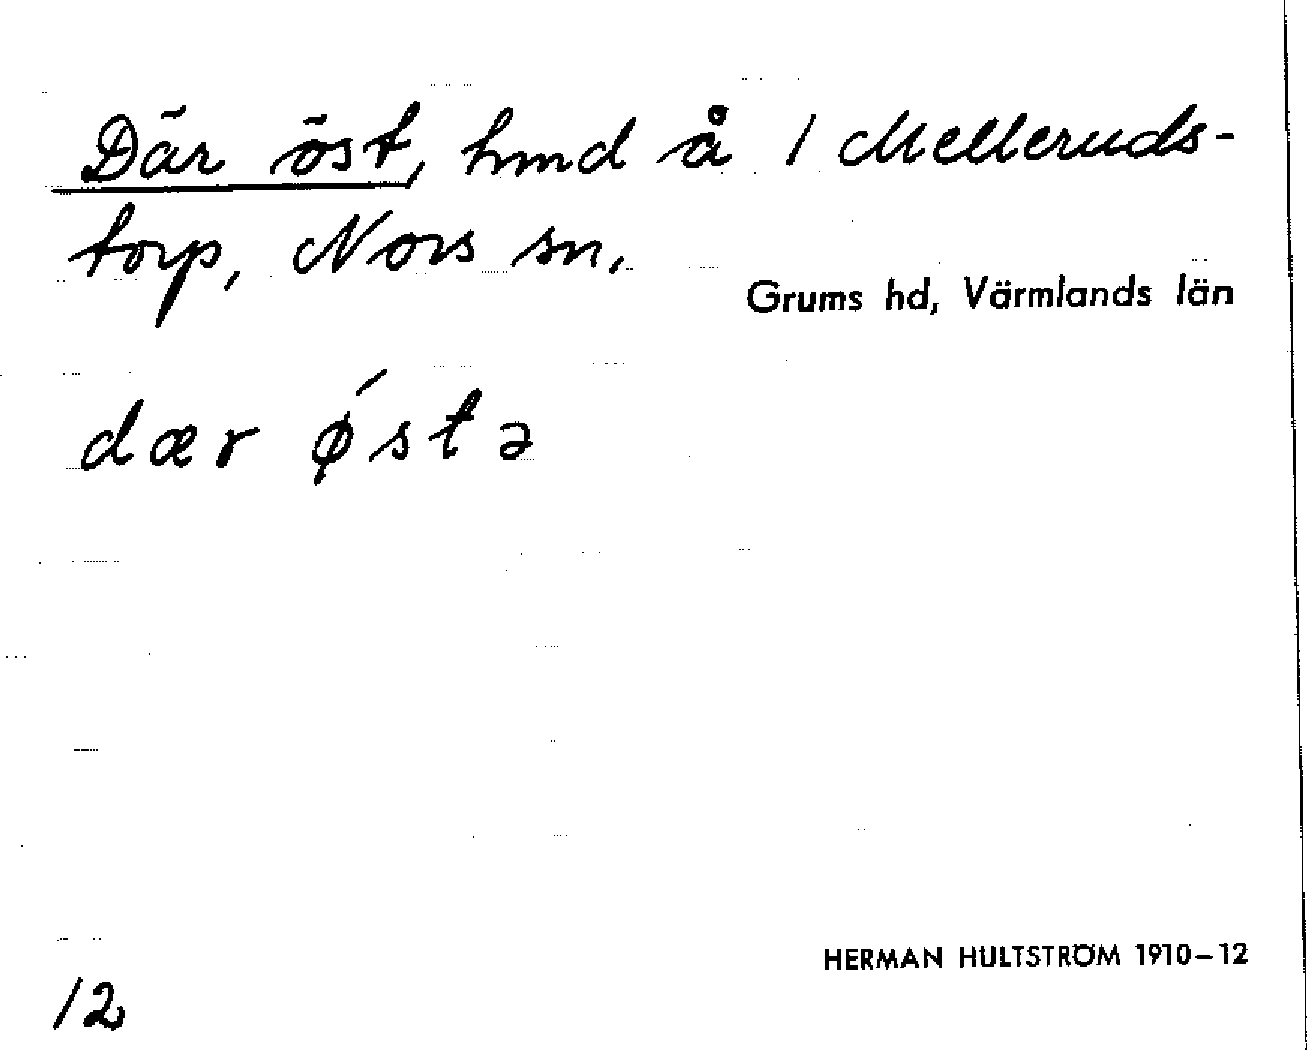 Där öst, hmd å 1 Melleruds-
torp, Nors sn.
Grums hd, Värmlands län
dær ǿstə
HERMAN HULTSTRÖM 1910–12
12